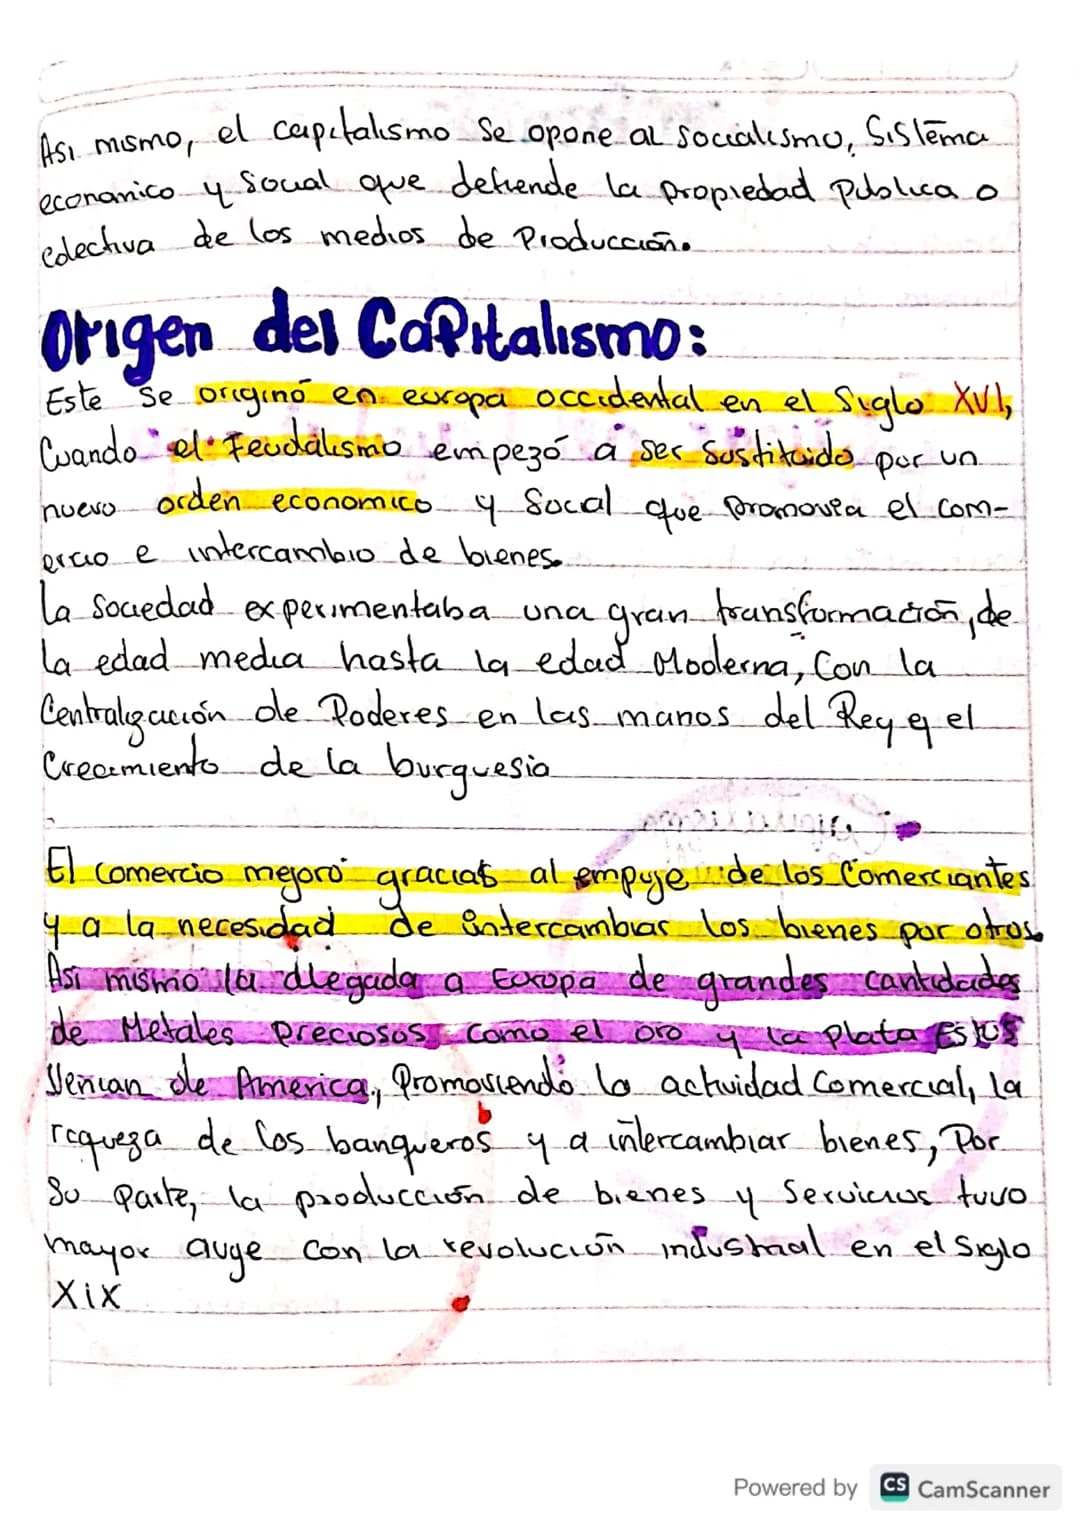 Asi mismo, el capitalismo se opone al socialismo, Sistema
economico y Social que defiende la propiedad Publica o
colectiva de los medios de Producción.
Origen del Capitalismo:
Este se originó en europa occidental en el Siglo XVI,
Cuando el Feudalismo empezó a ser Sustituido por un
nuevo orden economico y Social que promovia el com-
ercio e intercambio de bienes.
La Sociedad experimentaba una gran transformación, de
la edad media hasta la edad Moderna, Con la
Centralización de Poderes en las manos del Rey y el
Crecimiento de la burguesia
El comercio mejoró gracias al empuje de los Comerciantes
y a la necesidad de intercambiar los bienes por otros.
Asi mismo la llegada a Europa de grandes cantidades
de Metales Preciosos como el oro y la Plata Estos
Venian de America, Promoviendo la actividad Comercial, la
riqueza de los banqueros y a intercambiar bienes, Por
Su Parte, la producción de bienes y Servicios tuvo
mayor auge con la revolución industrial en el Siglo
XiX
Powered by CS CamScanner